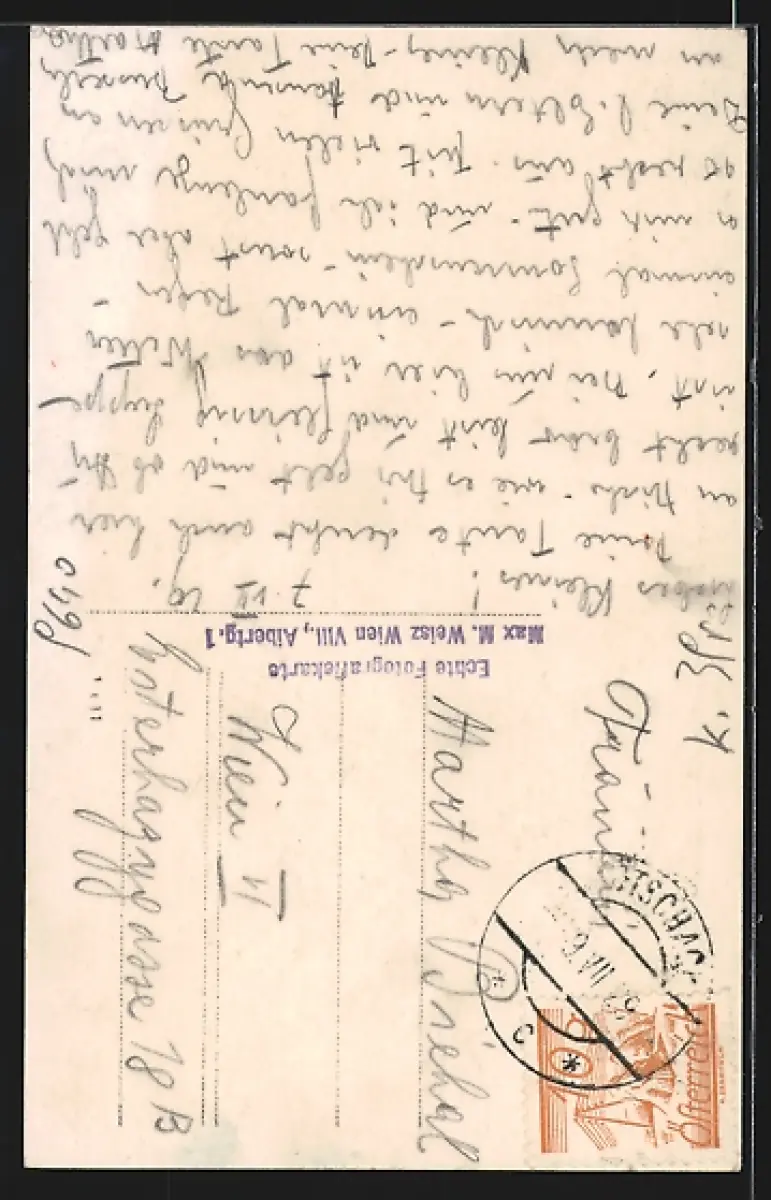 liebes Kleines! 7. VII 29.
Deine Tante denkt auch hier
an Dich – wie es Dir geht und ob Du
recht brav bist und fleissig Suppe
isst. Bei uns hier ist das Wetter –
sehr komisch – einmal Regen –
einmal Sonnenschein – sonst aber geht
es mir gut – und ich faulenze mich
so recht aus. Mit vielen Grüssen an
Deine l. Eltern und tausende Busserln
an mein Kleines – Deine Tante Martha
Echte Fotografiekarte
Max M. Weisz Wien VIII., Albertg. 1
Fräulein
Martha Briehal
Wien VI
Esterhazygasse 18 B
Österreich
10 g